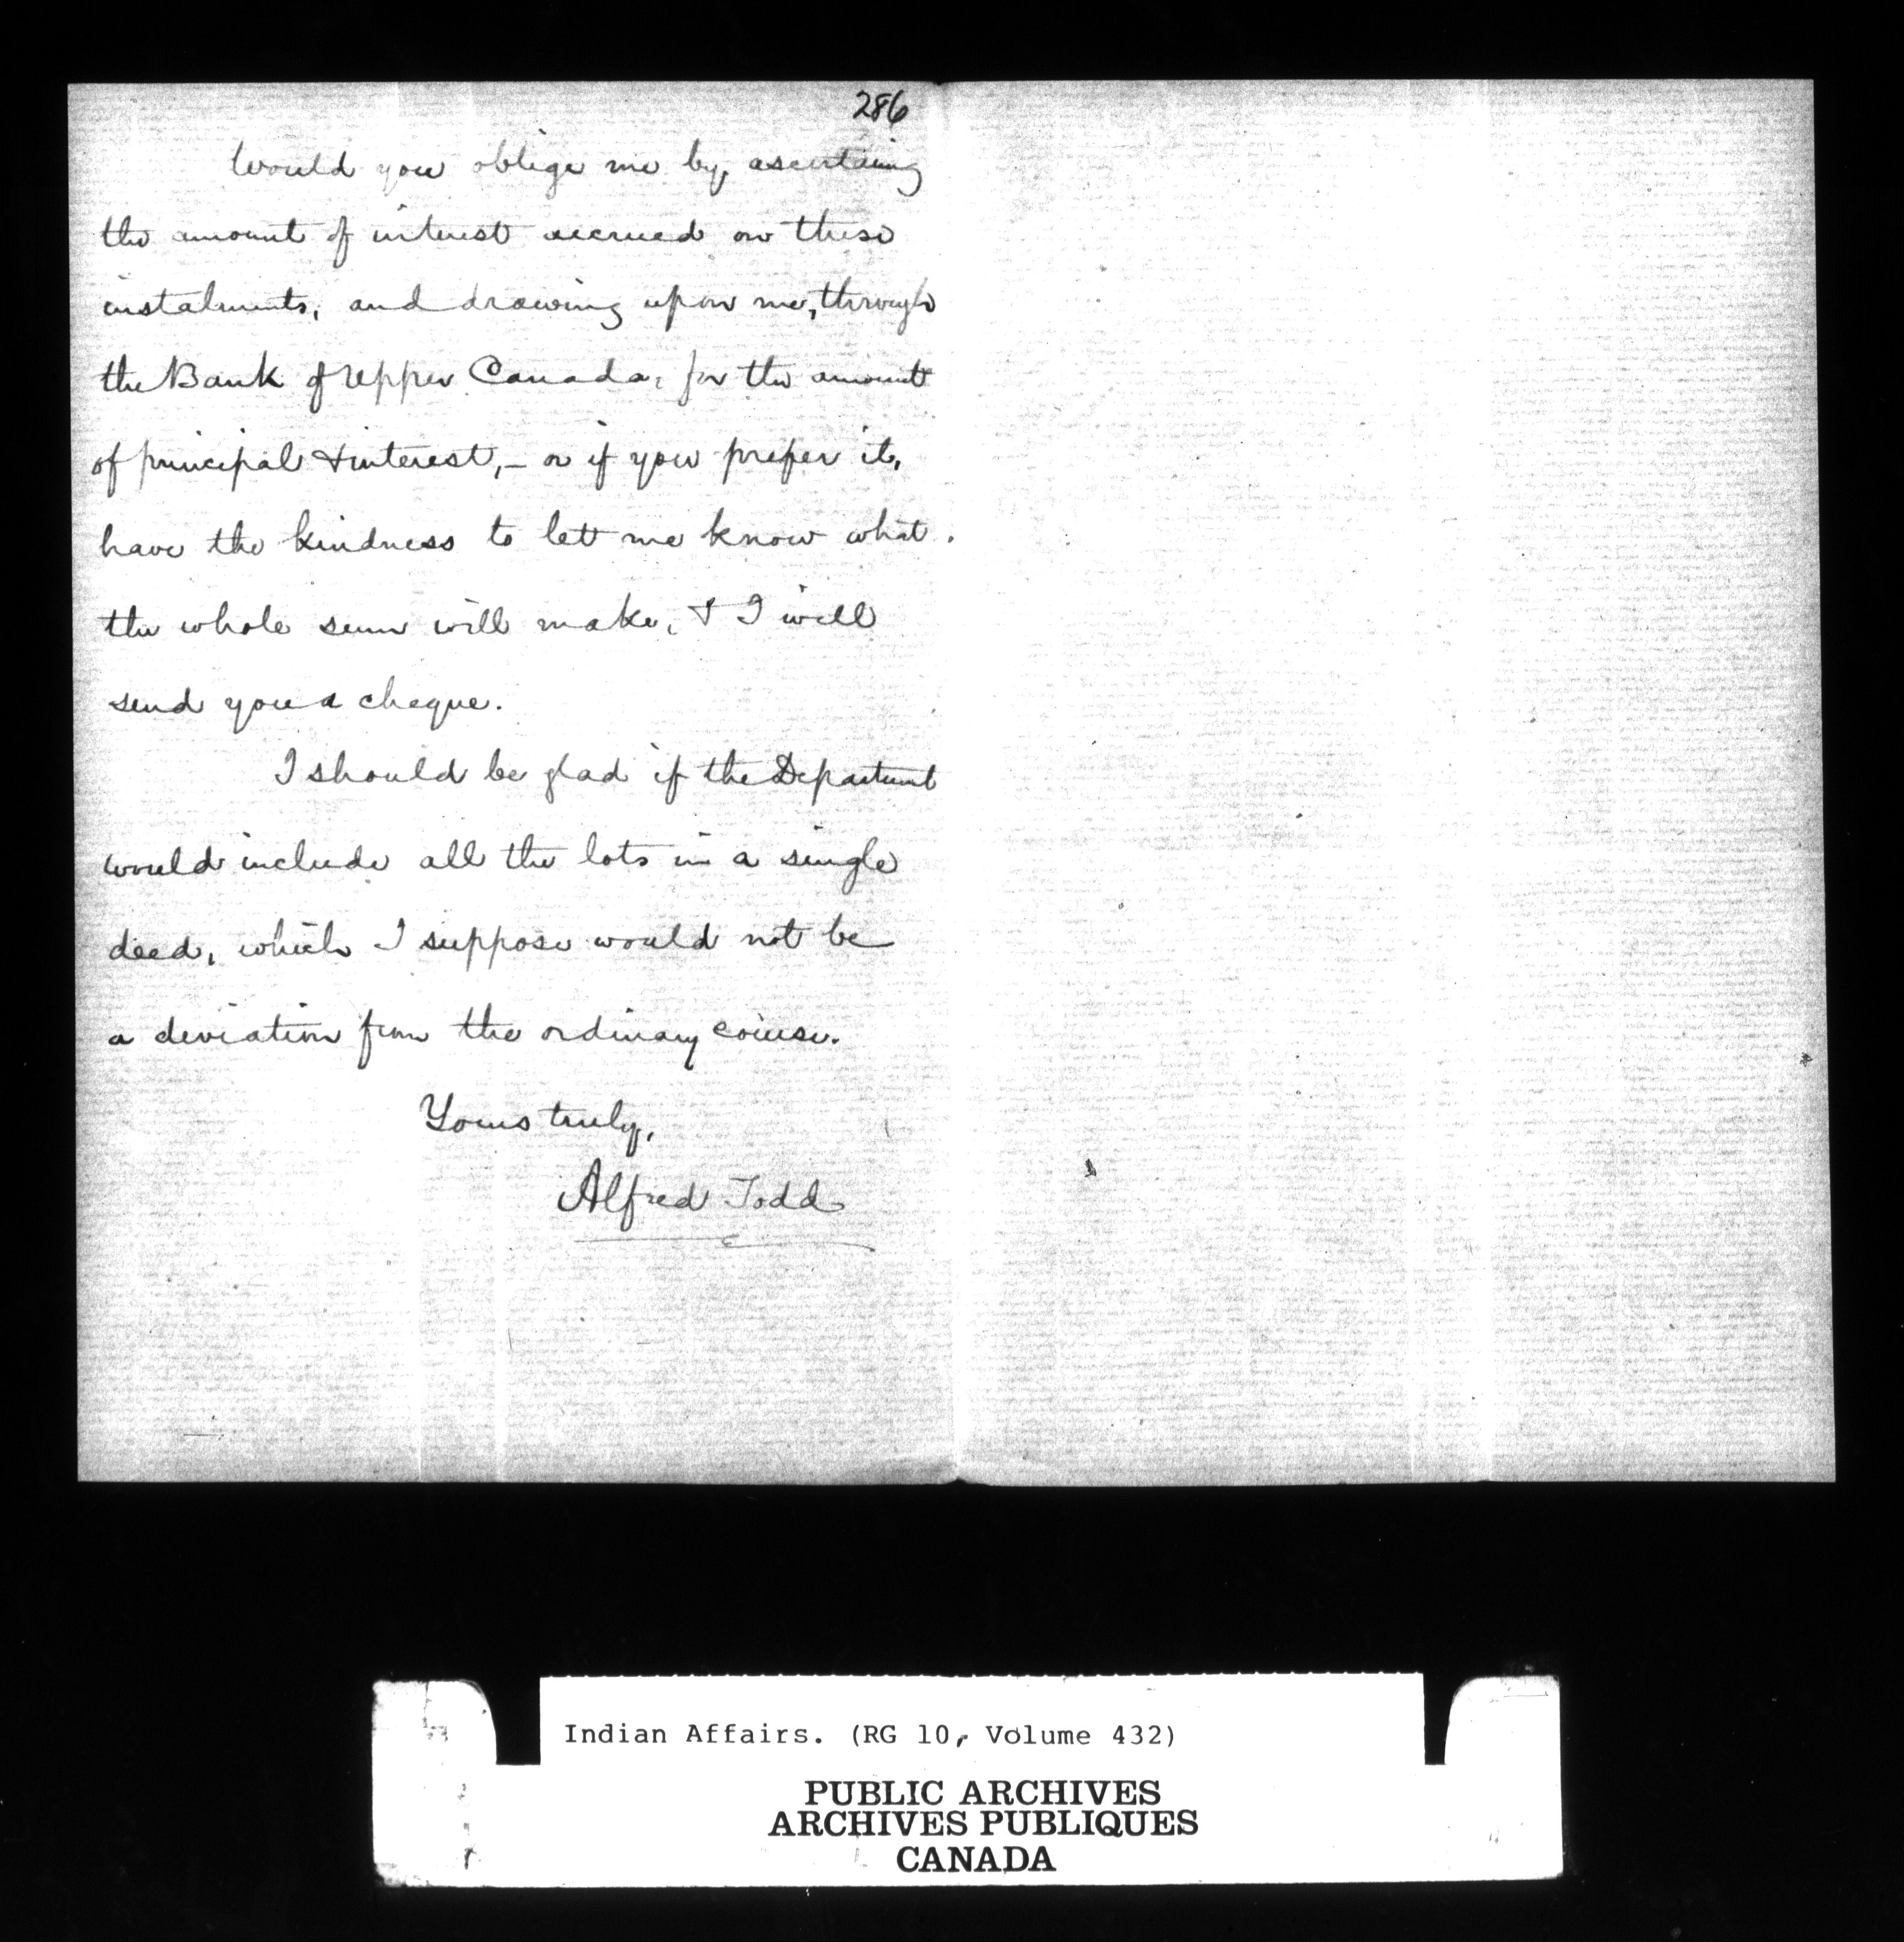 286
Would you oblige me by, ascertaining
the amount of interest accrued on these
instalments, and drawing upon me, through
the Bank of Upper Canada, for the amount
of principal & interest, – or if you prefer it,
have the kindness to let me know what
the whole sum will make, & I will
send you a cheque.
I should be glad if the Department
would include all the lots in a single
deed, which I suppose would not be
a deviation from the ordinary course.
Yours truly,
Alfred Todd
Indian Affairs. (RG 10, Volume 432)
PUBLIC ARCHIVES
ARCHIVES PUBLIQUES
CANADA